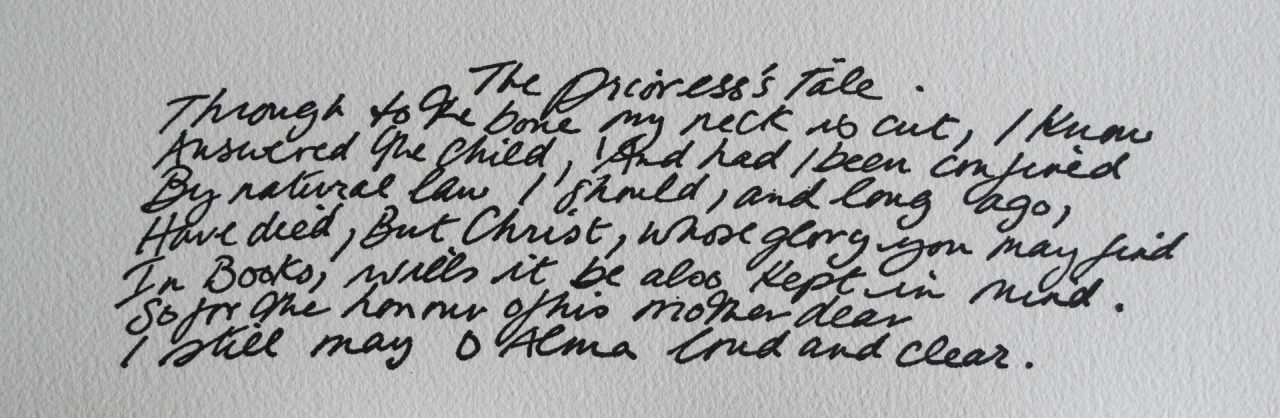 The Prioress's Tale.
Through to the bone my neck is cut, I know
Answered the child, 'And had I been confined
By natural law I should, and long ago,
Have died, But Christ, whose glory you may find
In Books, wills it be also kept in mind.
So for the honour of his mother dear
I still may O Alma loud and clear.